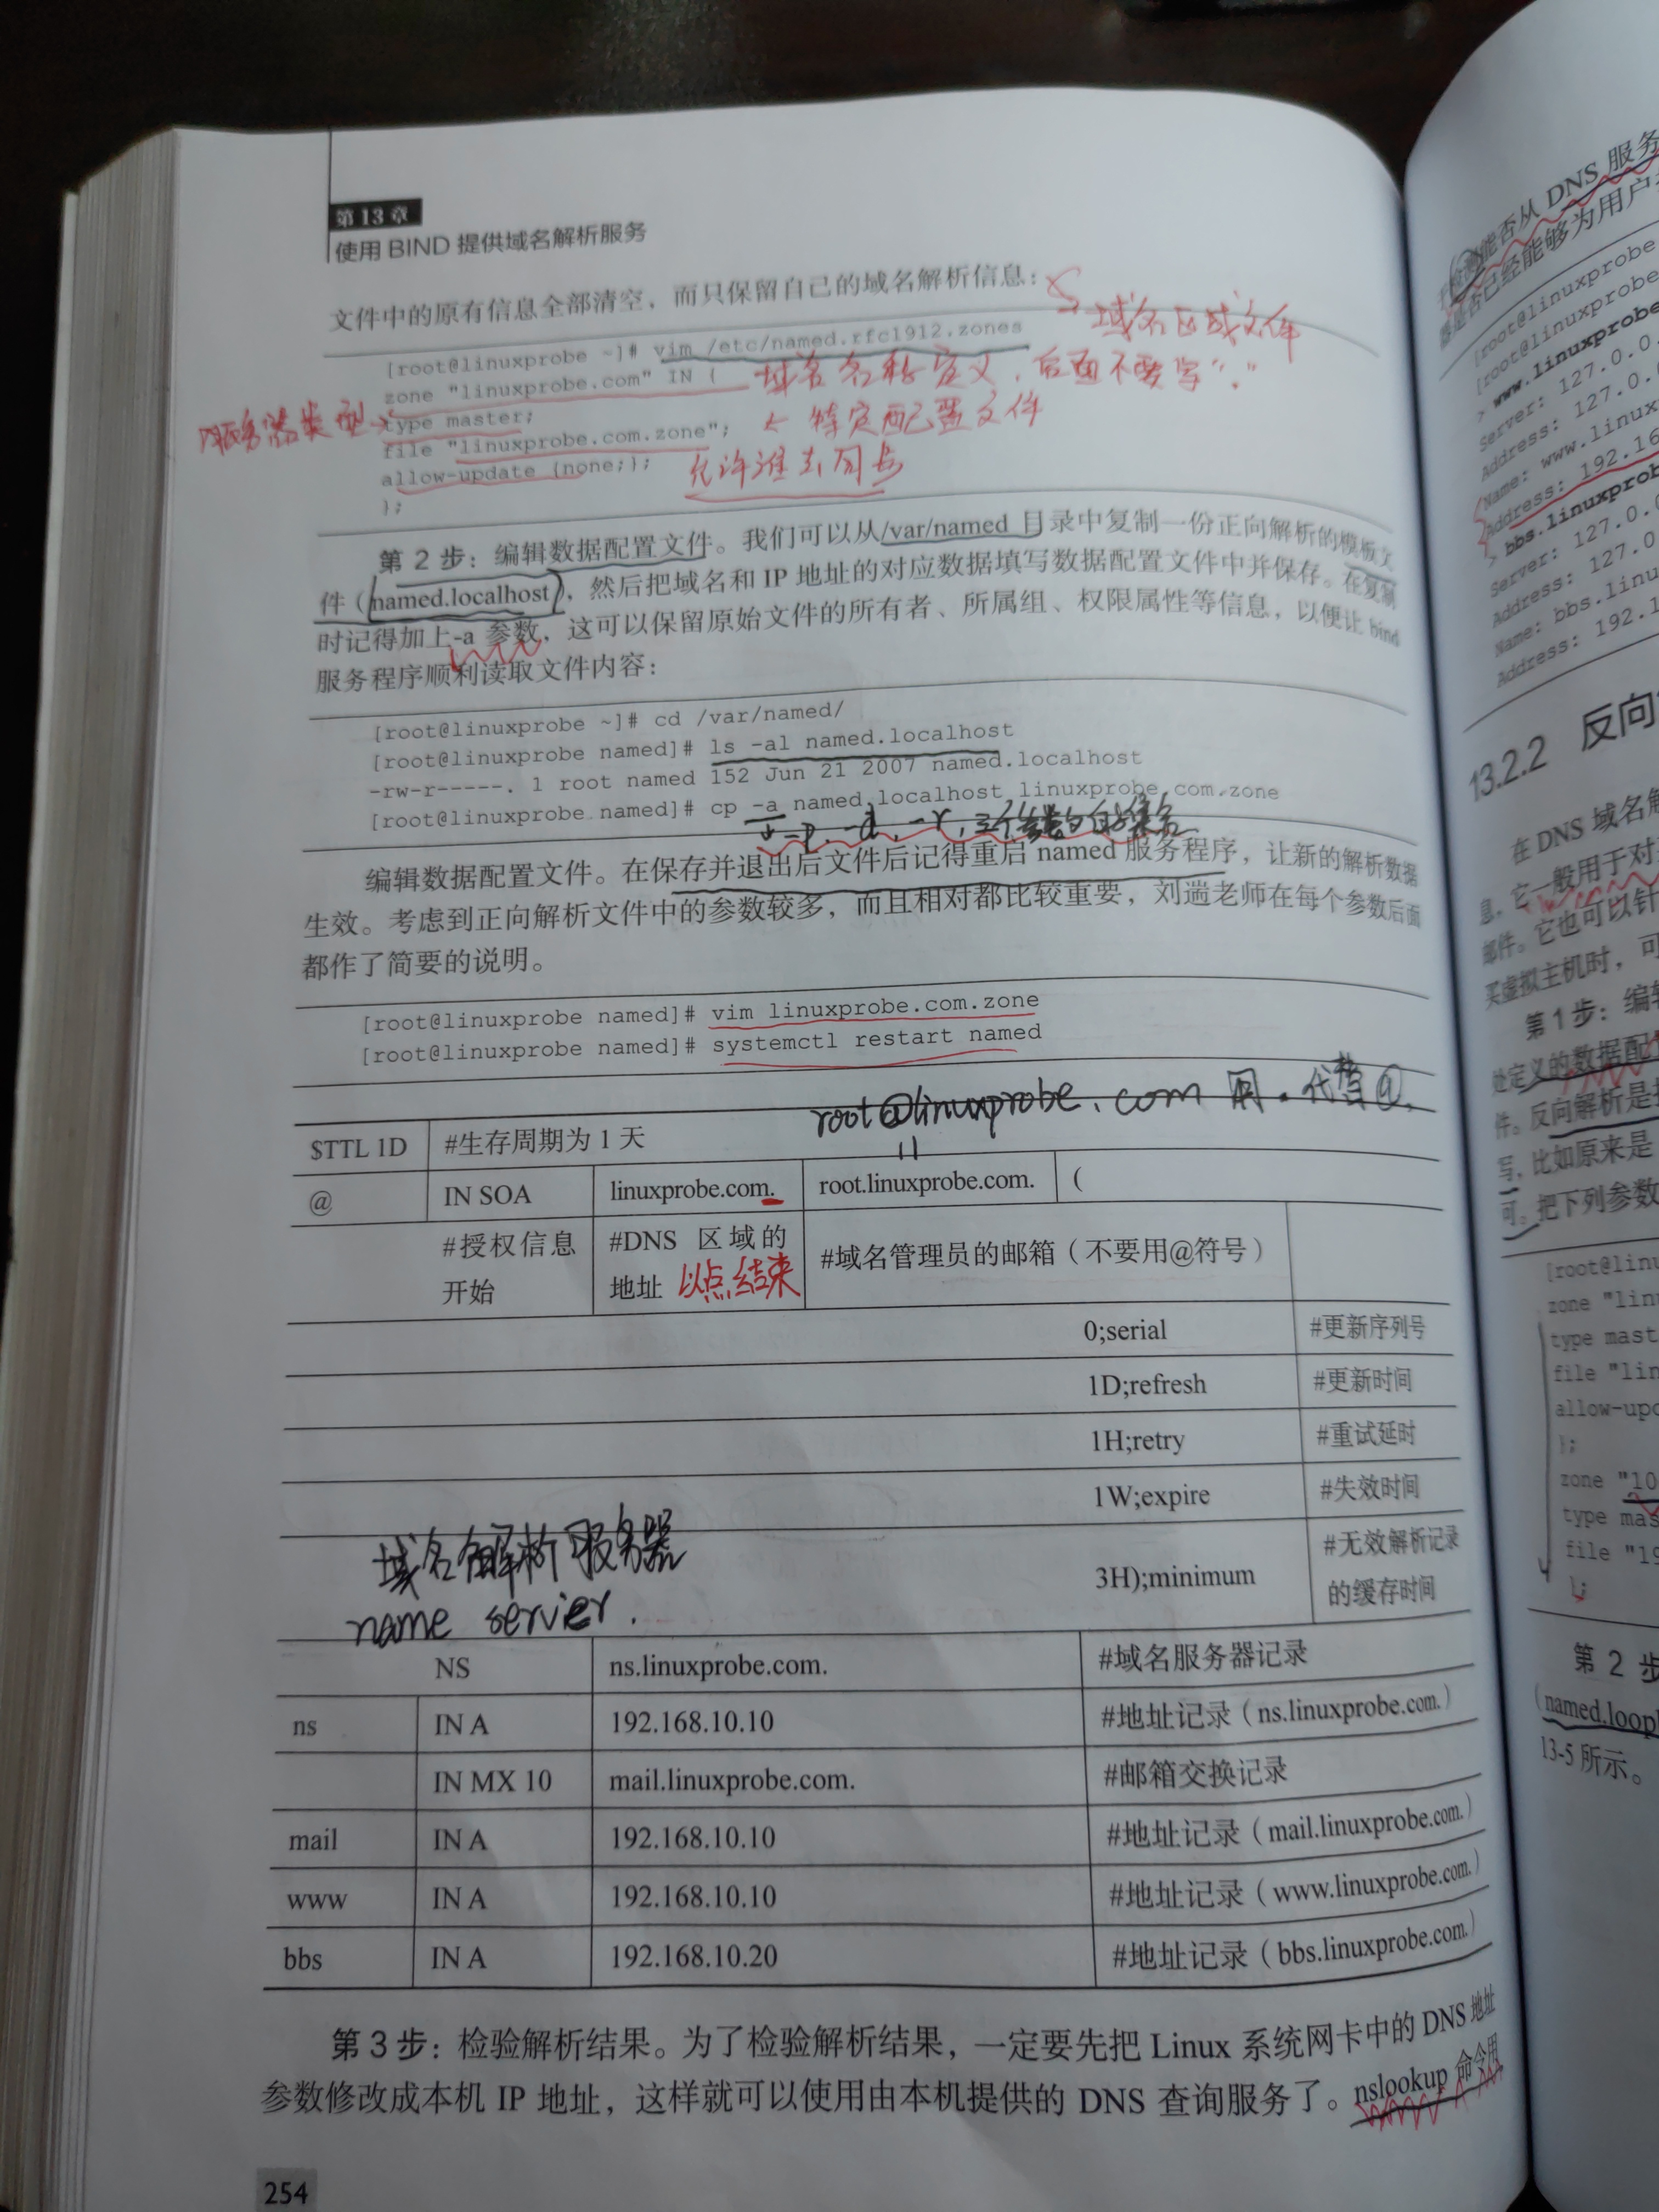 第13章
使用 BIND 提供域名解析服务
文件中的原有信息全部清空，而只保留自己的域名解析信息：
域名区域文件
[root@linuxprobe ~]# vim /etc/named.rfc1912.zones
zone "linuxprobe.com" IN {
域名名称定义，后面不要写"."
服务器类型
type master;
file "linuxprobe.com.zone";
← 特定配置文件
allow-update {none;};
允许谁去同步
};
第 2 步：编辑数据配置文件。我们可以从/var/named 目录中复制一份正向解析的模板文
件（named.localhost），然后把域名和 IP 地址的对应数据填写数据配置文件中并保存。在复制
时记得加上-a 参数，这可以保留原始文件的所有者、所属组、权限属性等信息，以便让 bind
服务程序顺利读取文件内容：
[root@linuxprobe ~]# cd /var/named/
[root@linuxprobe named]# ls -al named.localhost
-rw-r-----. 1 root named 152 Jun 21 2007 named.localhost
[root@linuxprobe named]# cp -a named.localhost linuxprobe.com.zone
↓ -p、-d、-r，三个参数的集合
编辑数据配置文件。在保存并退出后文件后记得重启 named 服务程序，让新的解析数据
生效。考虑到正向解析文件中的参数较多，而且相对都比较重要，刘遄老师在每个参数后面
都作了简要的说明。
[root@linuxprobe named]# vim linuxprobe.com.zone
[root@linuxprobe named]# systemctl restart named
root@linuxprobe.com 用.代替@.
$TTL 1D #生存周期为 1 天
@ IN SOA linuxprobe.com. root.linuxprobe.com. (
#授权信息 #DNS 区域的 #域名管理员的邮箱（不要用@符号）
开始 地址 以点结束
0;serial #更新序列号
1D;refresh #更新时间
1H;retry #重试延时
1W;expire #失效时间
域名解析服务器
3H);minimum #无效解析记录
的缓存时间
name server.
NS ns.linuxprobe.com. #域名服务器记录
ns IN A 192.168.10.10 #地址记录（ns.linuxprobe.com.）
IN MX 10 mail.linuxprobe.com. #邮箱交换记录
mail IN A 192.168.10.10 #地址记录（mail.linuxprobe.com.）
www IN A 192.168.10.10 #地址记录（www.linuxprobe.com.）
bbs IN A 192.168.10.20 #地址记录（bbs.linuxprobe.com.）
第 3 步：检验解析结果。为了检验解析结果，一定要先把 Linux 系统网卡中的 DNS 地址
参数修改成本机 IP 地址，这样就可以使用由本机提供的 DNS 查询服务了。nslookup 命令用
254
能否从 DNS 服务
是否已经能够为用户
[root@linuxprobe
[root@linuxprobe
> www.linuxprobe
Server: 127.0.0.
Address: 127.0.
Name: www.linux
Address: 192.16
> bbs.linuxprob
Server: 127.0.0
Address: 127.0
Name: bbs.linu
Address: 192.1
13.2.2 反向
在 DNS 域名解
息。它一般用于对
邮件。它也可以针
买虚拟主机时，可
第 1 步：编辑
处定义的数据配
件。反向解析是
写，比如原来是
可。把下列参数
[root@linu
zone "lin
type mast
file "lin
allow-upd
};
zone "10
type mas
file "19
};
第 2 步
（named.loop
13-5 所示。